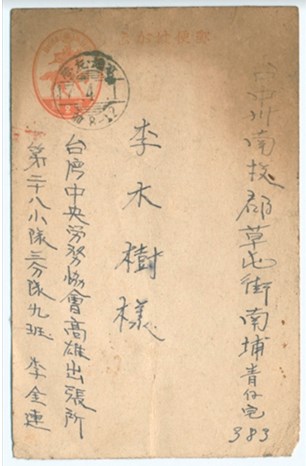 郵便はがき
台中州南投郡草屯街南埔青仔宅
383
李木樹樣
台湾中央労務協會高雄出張所
第二十八小隊三分隊九班 李金連